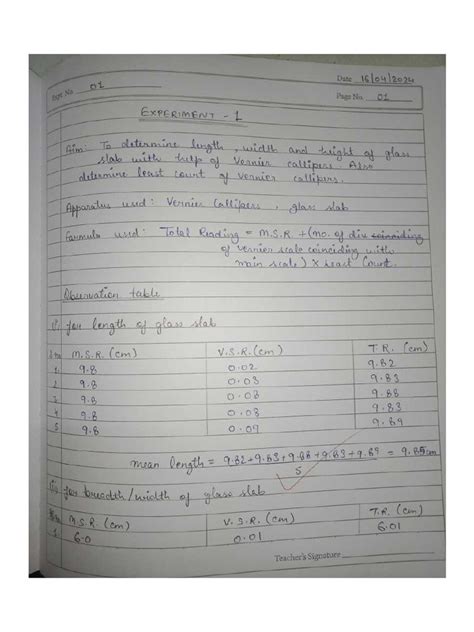 Date 16/04/2024
Expt. No. 01
Page No. 01
EXPERIMENT - 1
Aim: To determine length, width and height of glass
slab with help of Vernier callipers. Also
determine least count of vernier callipers.
Apparatus used: Vernier Callipers, glass slab
Formula used: Total Reading = M.S.R. + (no. of div coinciding
of vernier scale coinciding with
main scale) X Least Count.
Observation table
for length of glass slab
S.No M.S.R. (cm) V.S.R. (cm) T.R. (cm)
1. 9.8 0.02 9.82
2. 9.8 0.03 9.83
3. 9.8 0.08 9.88
4 9.8 0.03 9.83
5 9.8 0.09 9.89
mean length = 9.82+9.83+9.88+9.83+9.89 = 9.85cm
5
for breadth/width of glass slab
S.No M.S.R. (cm) V.S.R. (cm) T.R. (cm)
1 6.0 0.01 6.01
Teacher's Signature